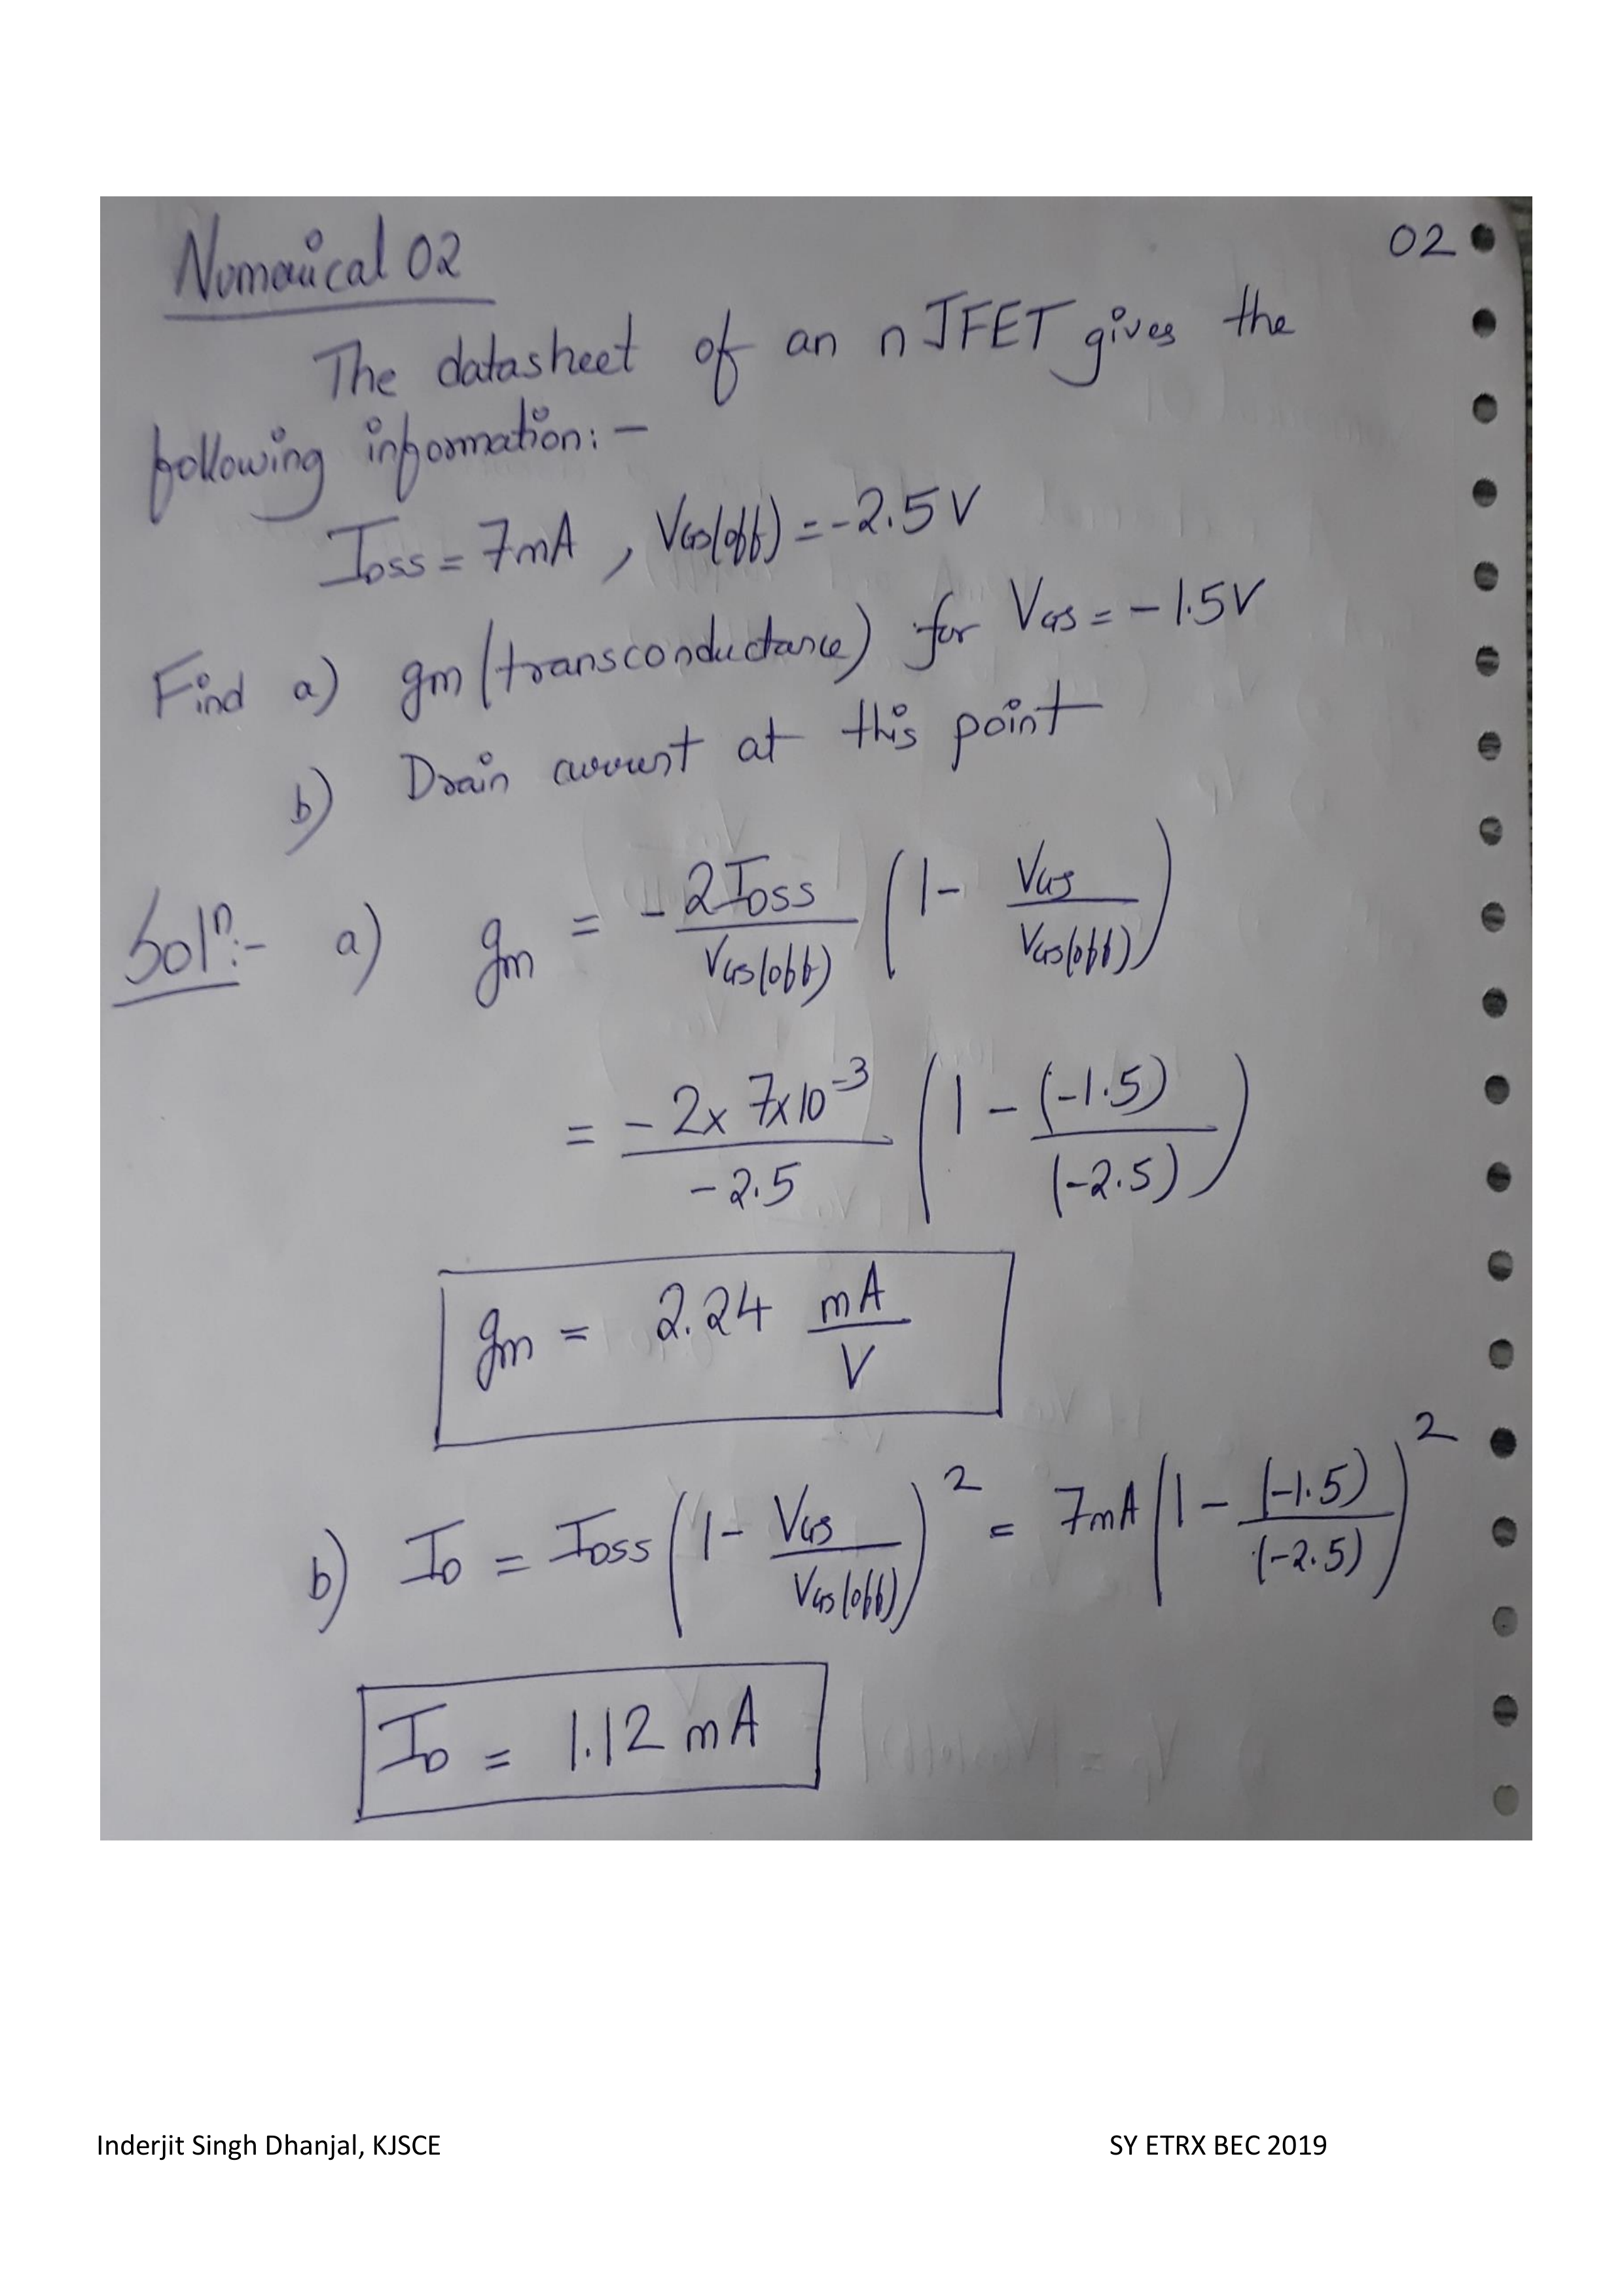 Numerical 02
02
The datasheet of an n JFET gives the
following information:-
IDSS = 7mA , VGS(off) = -2.5 V
Find a) gm (transconductance) for VGS = -1.5V
b) Drain current at this point
Solⁿ:- a) gm = - 2IDSS / VGS(off) (1 - VGS / VGS(off))
= -2 x 7x10⁻³ / -2.5 (1 - (-1.5) / (-2.5))
gm = 2.24 mA / V
b) ID = IDSS (1 - VGS / VGS(off))² = 7mA (1 - (-1.5) / (-2.5))²
ID = 1.12 mA
Inderjit Singh Dhanjal, KJSCE
SY ETRX BEC 2019